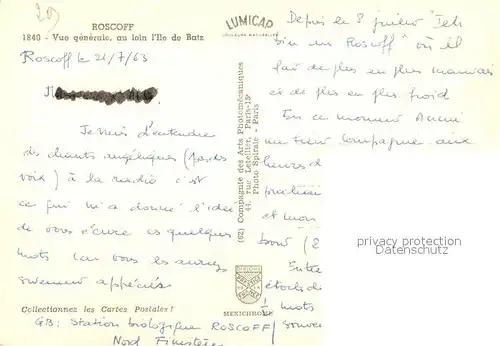 20
ROSCOFF
1840 - Vue générale, au loin l'Ile de Batz
LUMICAP
COULEURS NATURELLES
Roscoff le 21/7/63
Je viens d'entendre
des chants angéliques (par des
voix) à la radio c'est
ce qui m'a donné l'idée
de vous écrire ces quelques
mots car vous les auriez
sûrement appréciés
Collectionnez les Cartes Postales !
GB: Station biologique ROSCOFF
Nord Finistère
(62) Compagnie des Arts Photomécaniques
44, rue Letellier, Paris-15e
Photo Spirale - Paris
MEXICHROME
Depuis le 8 juillet
Roscoff" où il
fait de plus en plus mauvais
et de plus en plus froid
En ce moment
compagnie aux
heures d
et mon
Entre
étoiles de
mots
privacy protection
Datenschutz